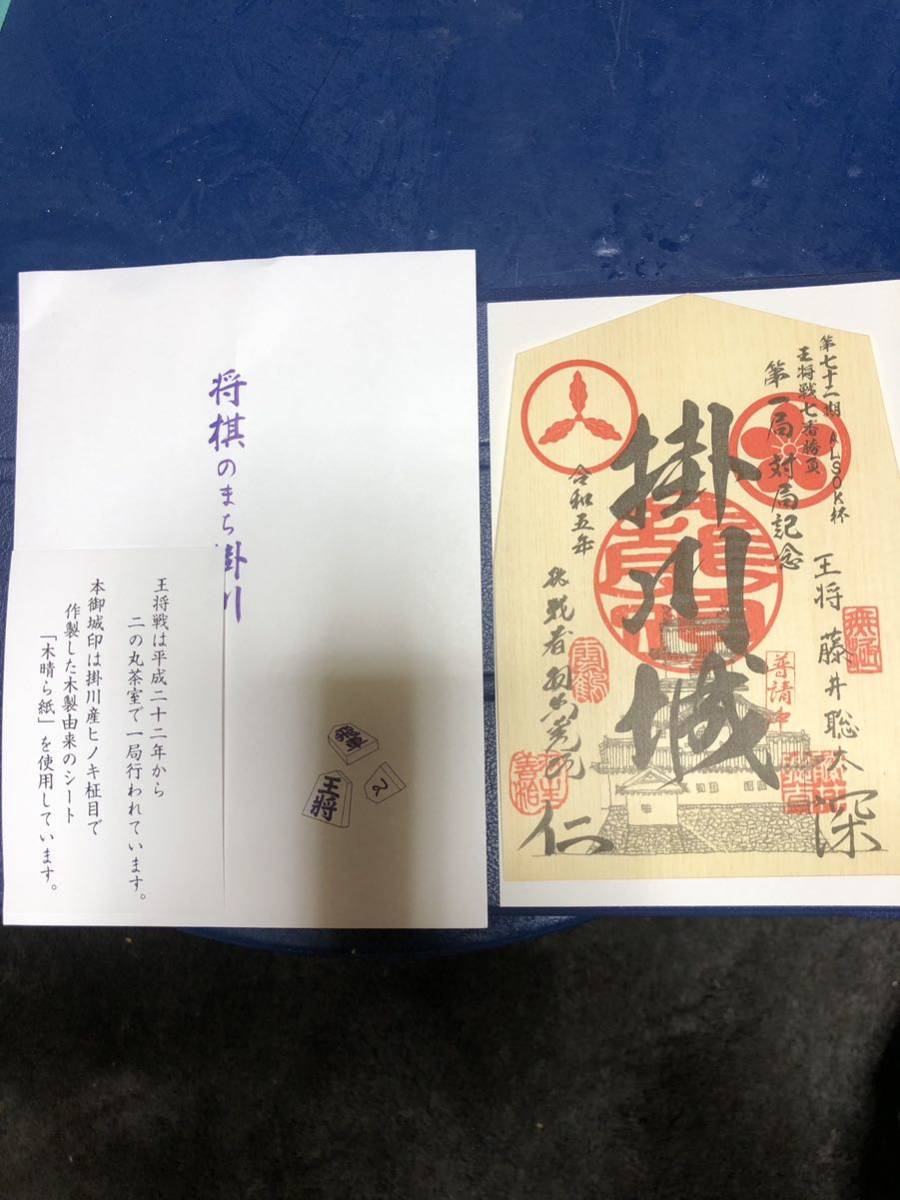 将棋のまち掛川
王将戦は平成二十二年から
二の丸茶室で一局行われています。
本御城印は掛川産ヒノキ柾目で
作製した木製由来のシート
「木晴ら紙」を使用しています。
王将
と
第七十二期ALSOK杯
王将戦七番勝負
第一局対局記念
王将 藤井聡太
深
普請中
掛川城
令和五年
挑戦者 羽生善治
仁